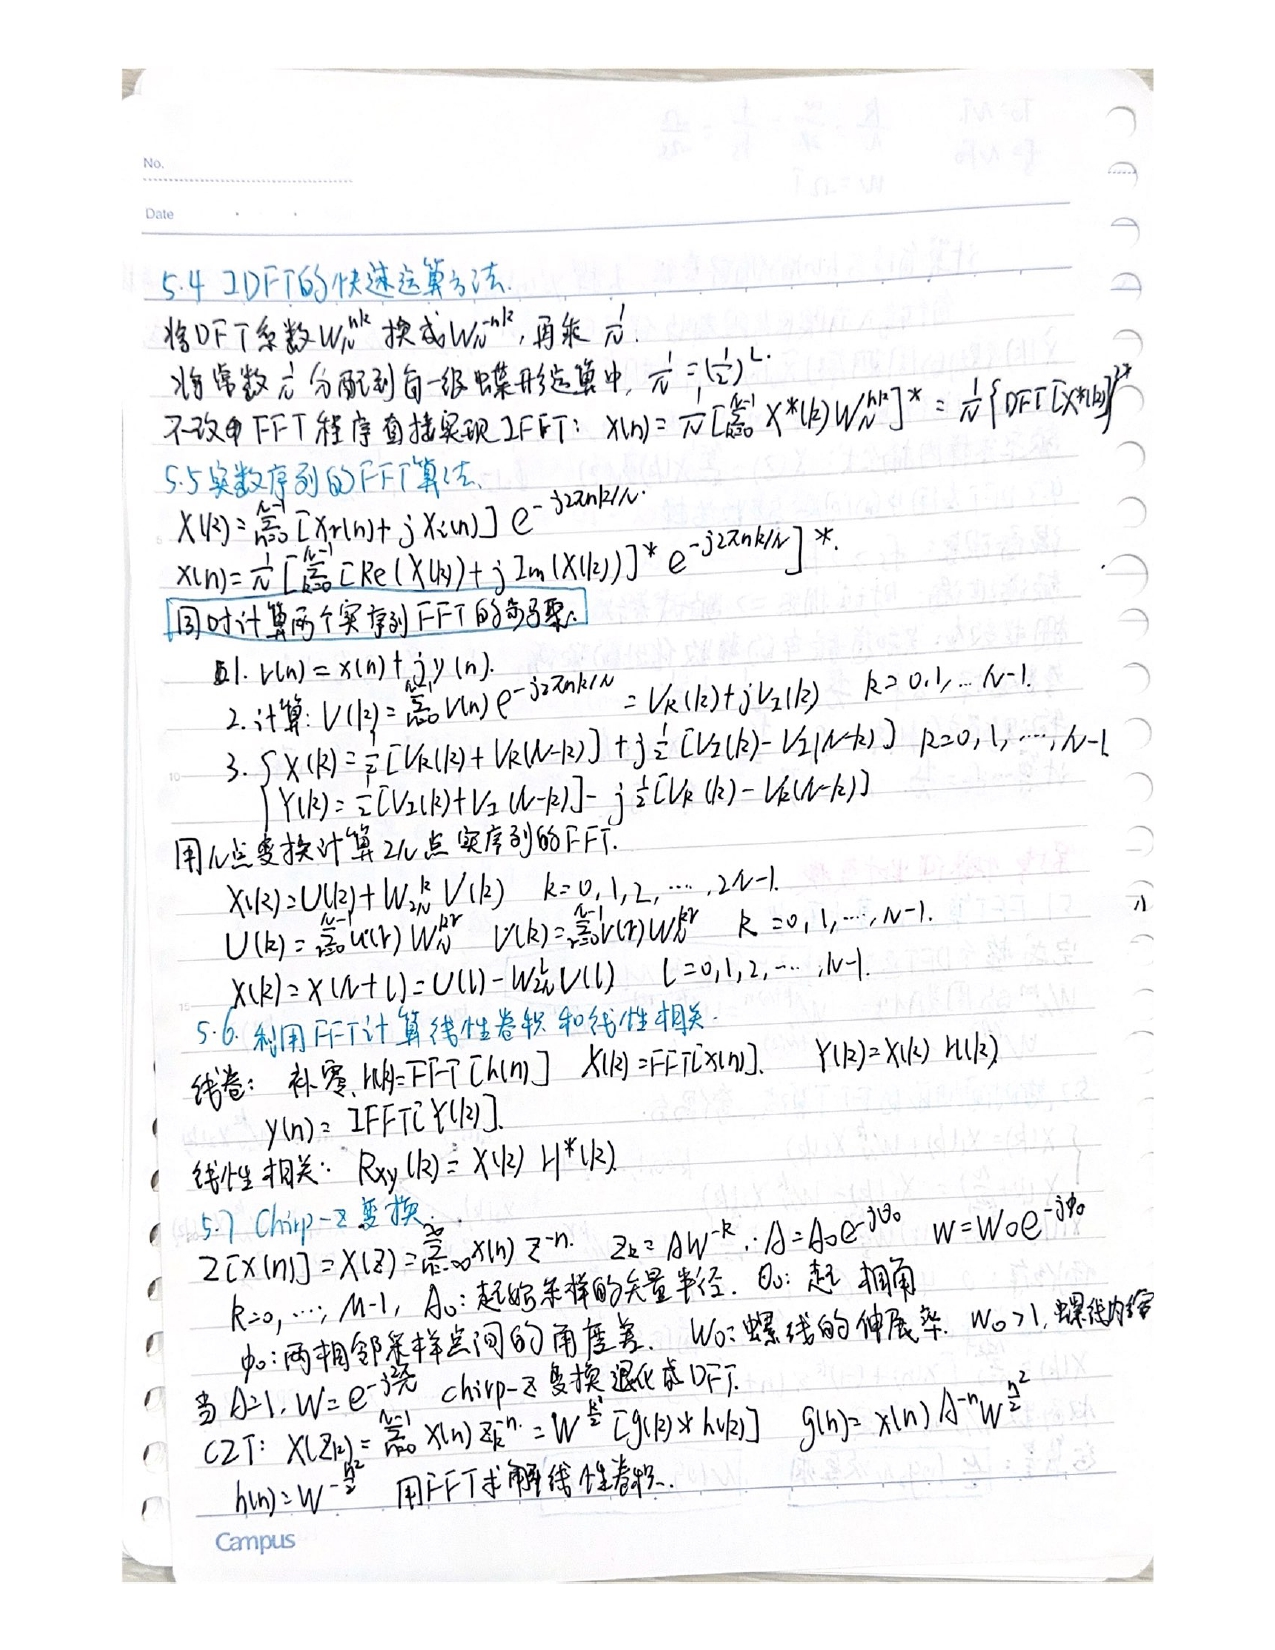 No.
Date
5.4 IDFT的快速运算方法.
将DFT系数 W_N^{nk} 换成 W_N^{-nk}, 再乘 1/N.
将常数 1/N 分配到每一级蝶形运算中, 1/N = (1/2)^L.
不改中FFT程序直接实现IFFT: x(n) = 1/N [Σ_{k=0}^{N-1} X*(k) W_N^{nk}]* = 1/N {DFT[X*(k)]}*
5.5 实数序列的FFT算法.
X(k) = Σ_{n=0}^{N-1} [Xr(n) + jXi(n)] e^{-j2πnk/N}.
x(n) = 1/N [Σ_{k=0}^{N-1} [Re(X(k)) + j Im(X(k))]* e^{-j2πnk/N}]*.
同时计算两个实序列FFT的步骤:
1. v(n) = x(n) + jy(n).
2. 计算: V(k) = Σ_{n=0}^{N-1} v(n) e^{-j2πnk/N} = V_R(k) + jV_I(k) k = 0,1,…N-1.
3. { X(k) = 1/2 [V_R(k) + V_R(N-k)] + j 1/2 [V_I(k) - V_I(N-k)] k=0,1,…,N-1
Y(k) = 1/2 [V_I(k) + V_I(N-k)] - j 1/2 [V_R(k) - V_R(N-k)]
用N点变换计算2N点实序列的FFT.
X(k) = U(k) + W_{2N}^k V(k) k=0,1,2,…,2N-1.
U(k) = Σ_{r=0}^{N-1} u(r) W_N^{kr} V(k) = Σ_{r=0}^{N-1} v(r) W_N^{kr} k=0,1,…,N-1.
X(k) = X(N+l) = U(l) - W_{2N}^l V(l) l=0,1,2,…,N-1.
5.6. 利用FFT计算线性卷积和线性相关.
线卷: 补零, H(k)=FFT[h(n)] X(k)=FFT[x(n)]. Y(k)=X(k) H(k)
y(n) = IFFT[Y(k)].
线性相关: Rxy(k) = X(k) H*(k).
5.7 Chirp-z变换.
Z[x(n)] = X(z) = Σ_{n=-∞}^{∞} x(n) z^{-n}. z_k = AW^{-k}, A = A_0 e^{-jθ_0} W = W_0 e^{-jφ_0}
k=0,…, M-1, A_0: 起始采样的矢量半径. θ_0: 起 相角
φ_0: 两相邻采样点间的角度差. W_0: 螺线的伸展率. W_0>1, 螺线内缩
当A=1, W=e^{-j2π/N} chirp-z变换退化成DFT.
CZT: X(z_k) = Σ_{n=0}^{N-1} x(n) z_k^{-n} = W^{k²/2} [g(k) * h(k)] g(n) = x(n) A^{-n} W^{n²/2}
h(n) = W^{-n²/2} 用FFT求解线性卷积.
Campus